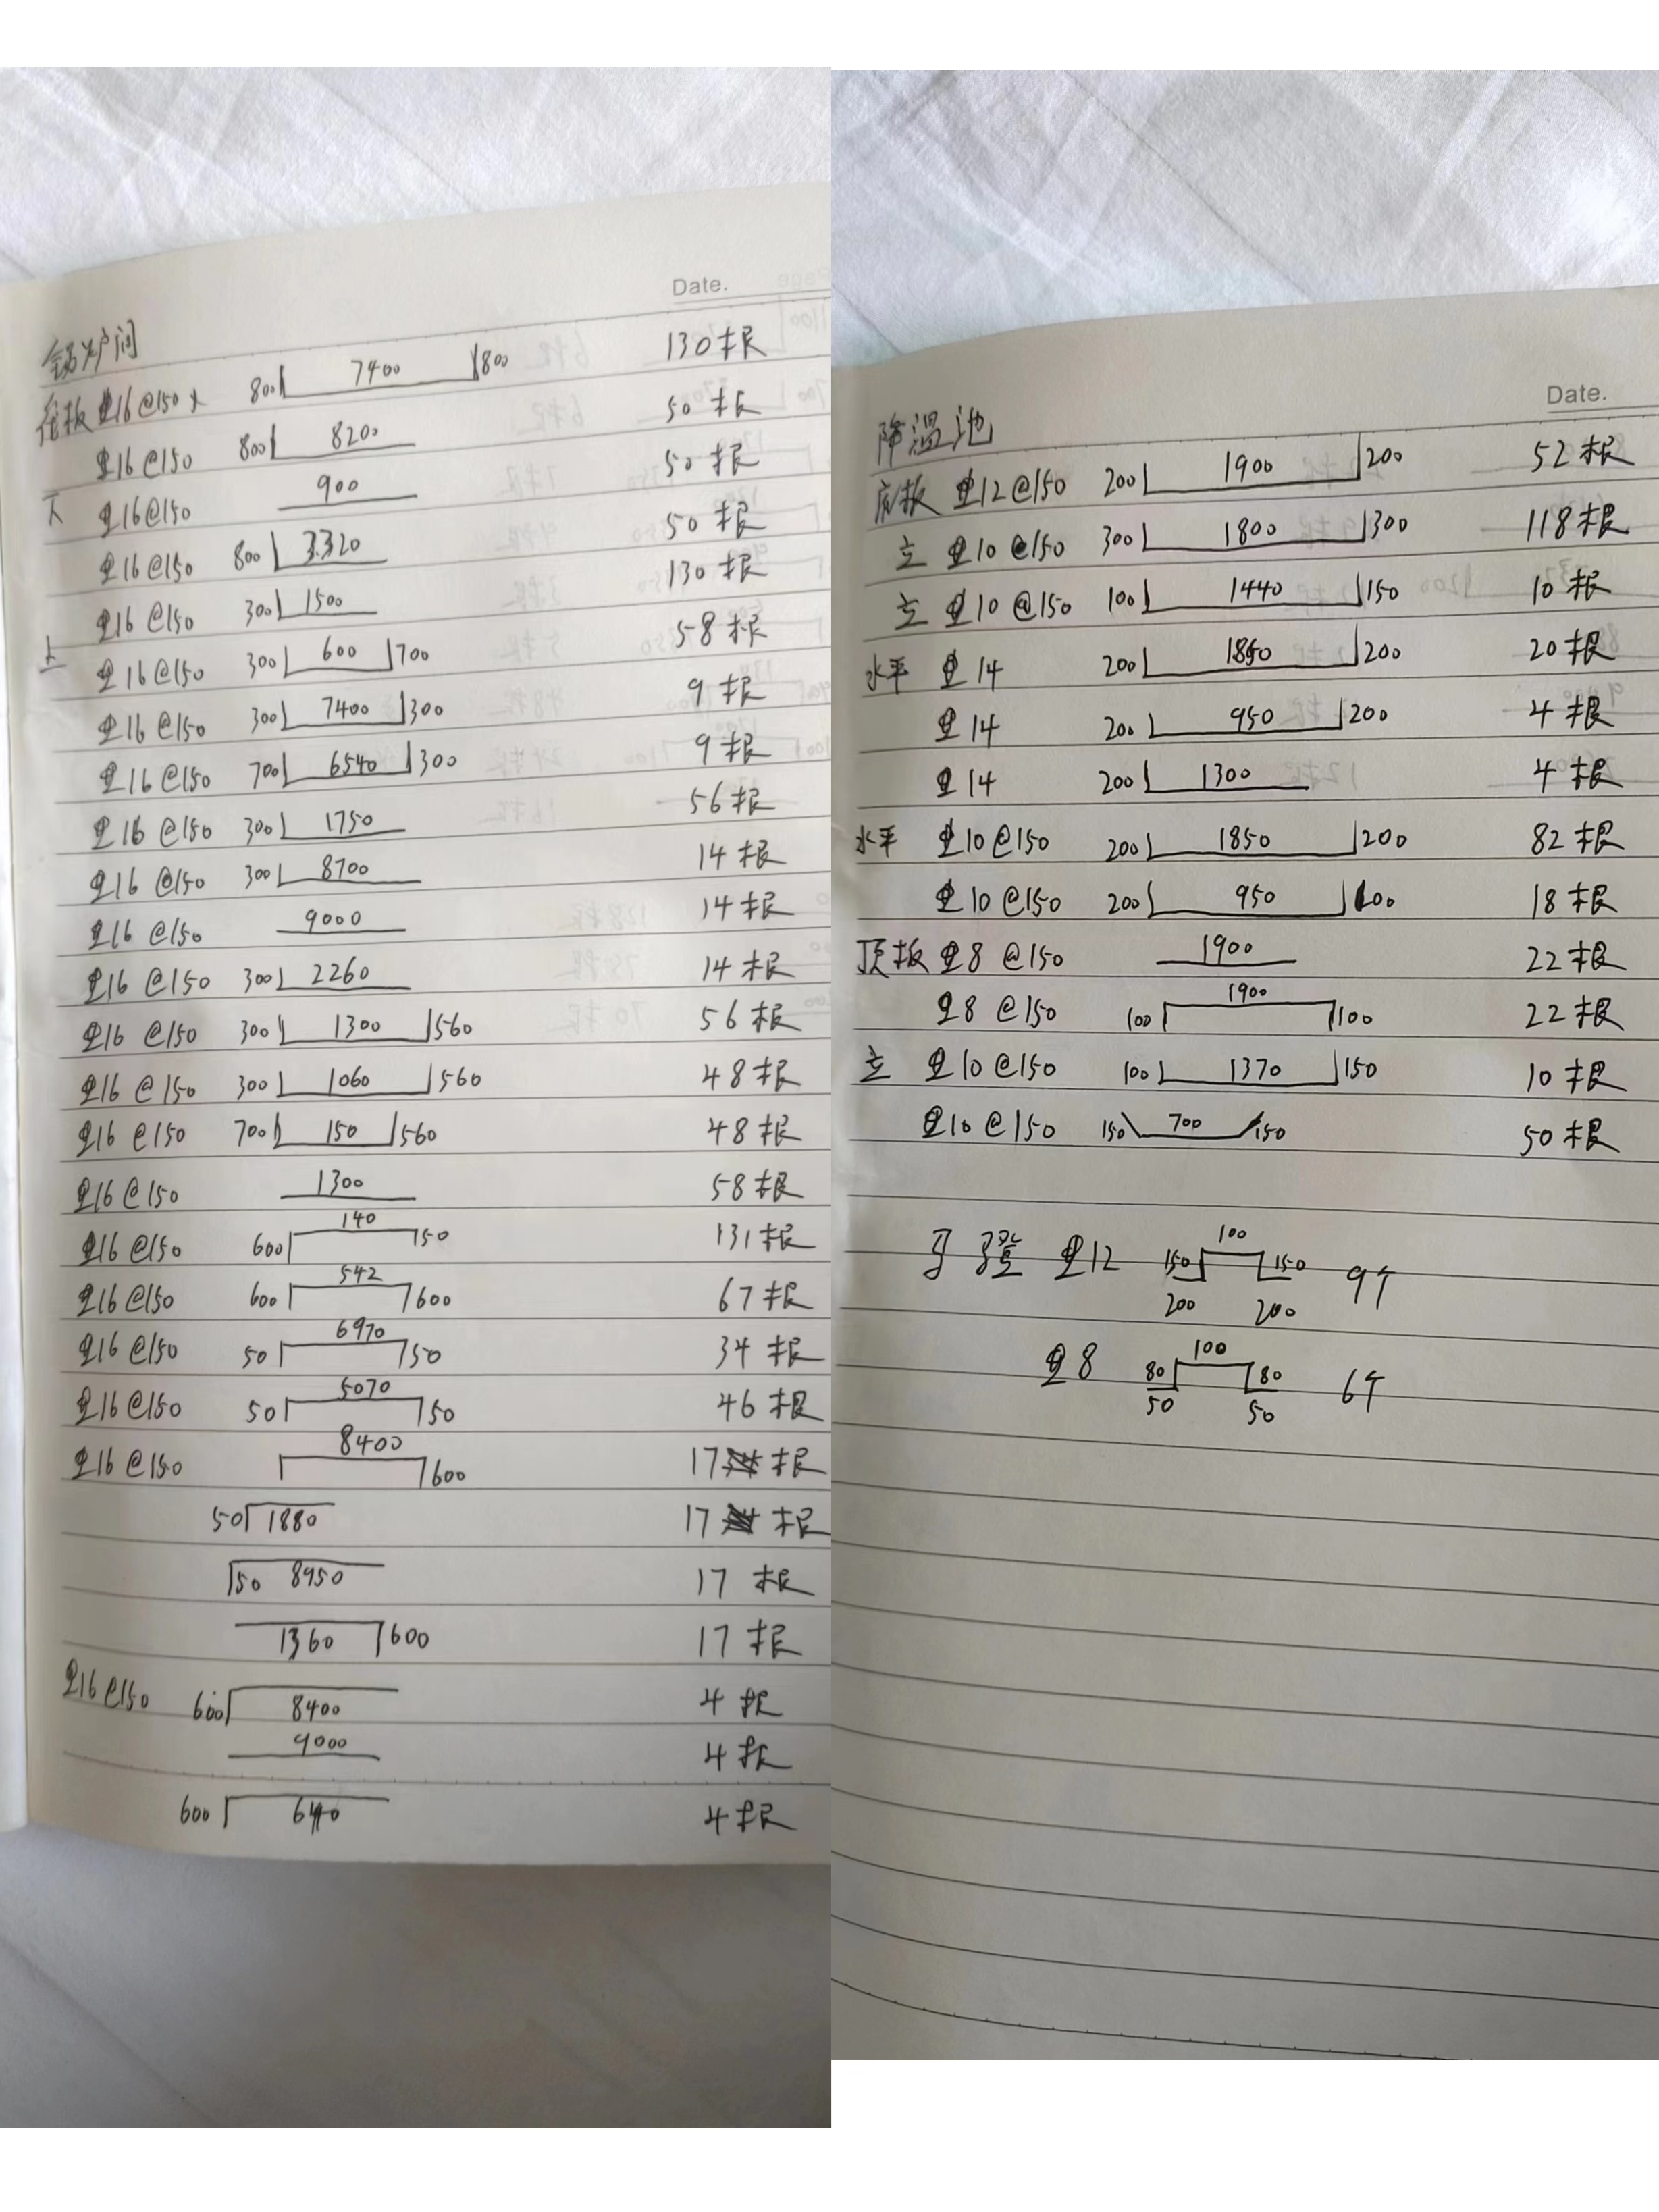 Date.
锅炉间
筏板 ⌀16@150 800 7400 800 130根
⌀16@150 800 8200 50根
下 ⌀16@150 900 50根
⌀16@150 800 3320 50根
⌀16@150 300 1500 130根
上 ⌀16@150 300 600 700 58根
⌀16@150 300 7400 300 9根
⌀16@150 700 6540 300 9根
⌀16@150 300 1750 56根
⌀16@150 300 8700 14根
⌀16@150 9000 14根
⌀16@150 300 2260 14根
⌀16@150 300 1300 560 56根
⌀16@150 300 1060 560 48根
⌀16@150 700 150 560 48根
⌀16@150 1300 58根
⌀16@150 600 140 150 131根
⌀16@150 600 542 600 67根
⌀16@150 50 6970 50 34根
⌀16@150 50 5070 50 46根
⌀16@150 8400 600 17根
50 1880 17根
50 8950 17根
1360 600 17根
⌀16@150 600 8400 4根
9000 4根
600 4根
Date.
降温池
底板 ⌀12@150 200 1900 200 52根
立 ⌀10@150 300 1800 300 118根
立 ⌀10@150 100 1440 150 10根
水平 ⌀14 200 1850 200 20根
⌀14 200 950 200 4根
⌀14 200 1300 4根
水平 ⌀10@150 200 1850 200 82根
⌀10@150 200 950 18根
顶板 ⌀8@150 1900 22根
⌀8@150 100 1900 100 22根
立 ⌀10@150 100 1370 150 10根
⌀10@150 150 700 150 50根
马凳 ⌀12 150 100 150 9个
200 200
⌀8 80 100 80 6个
50 50